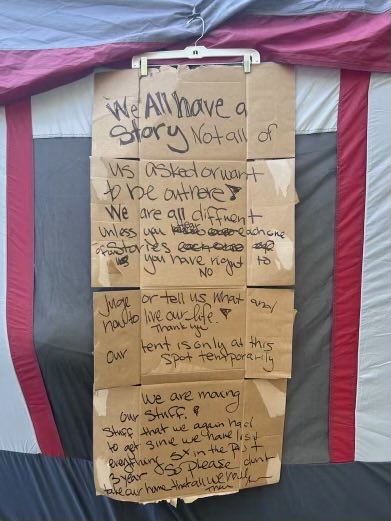 We All have a
Story Not all of
us asked or want
to be outhere
We are all diffrent
unless you hear each one
of our Stories
us you have right to
NO
Juge or tell us what and
how to live our life.
Thank you
Our tent is only at this
spot temporarily
we are moving
our stuff. &
stuff that we again had
to get since we have lost
everything 5x in the Past
3 year So Please dont
take our home thats all we have
Them